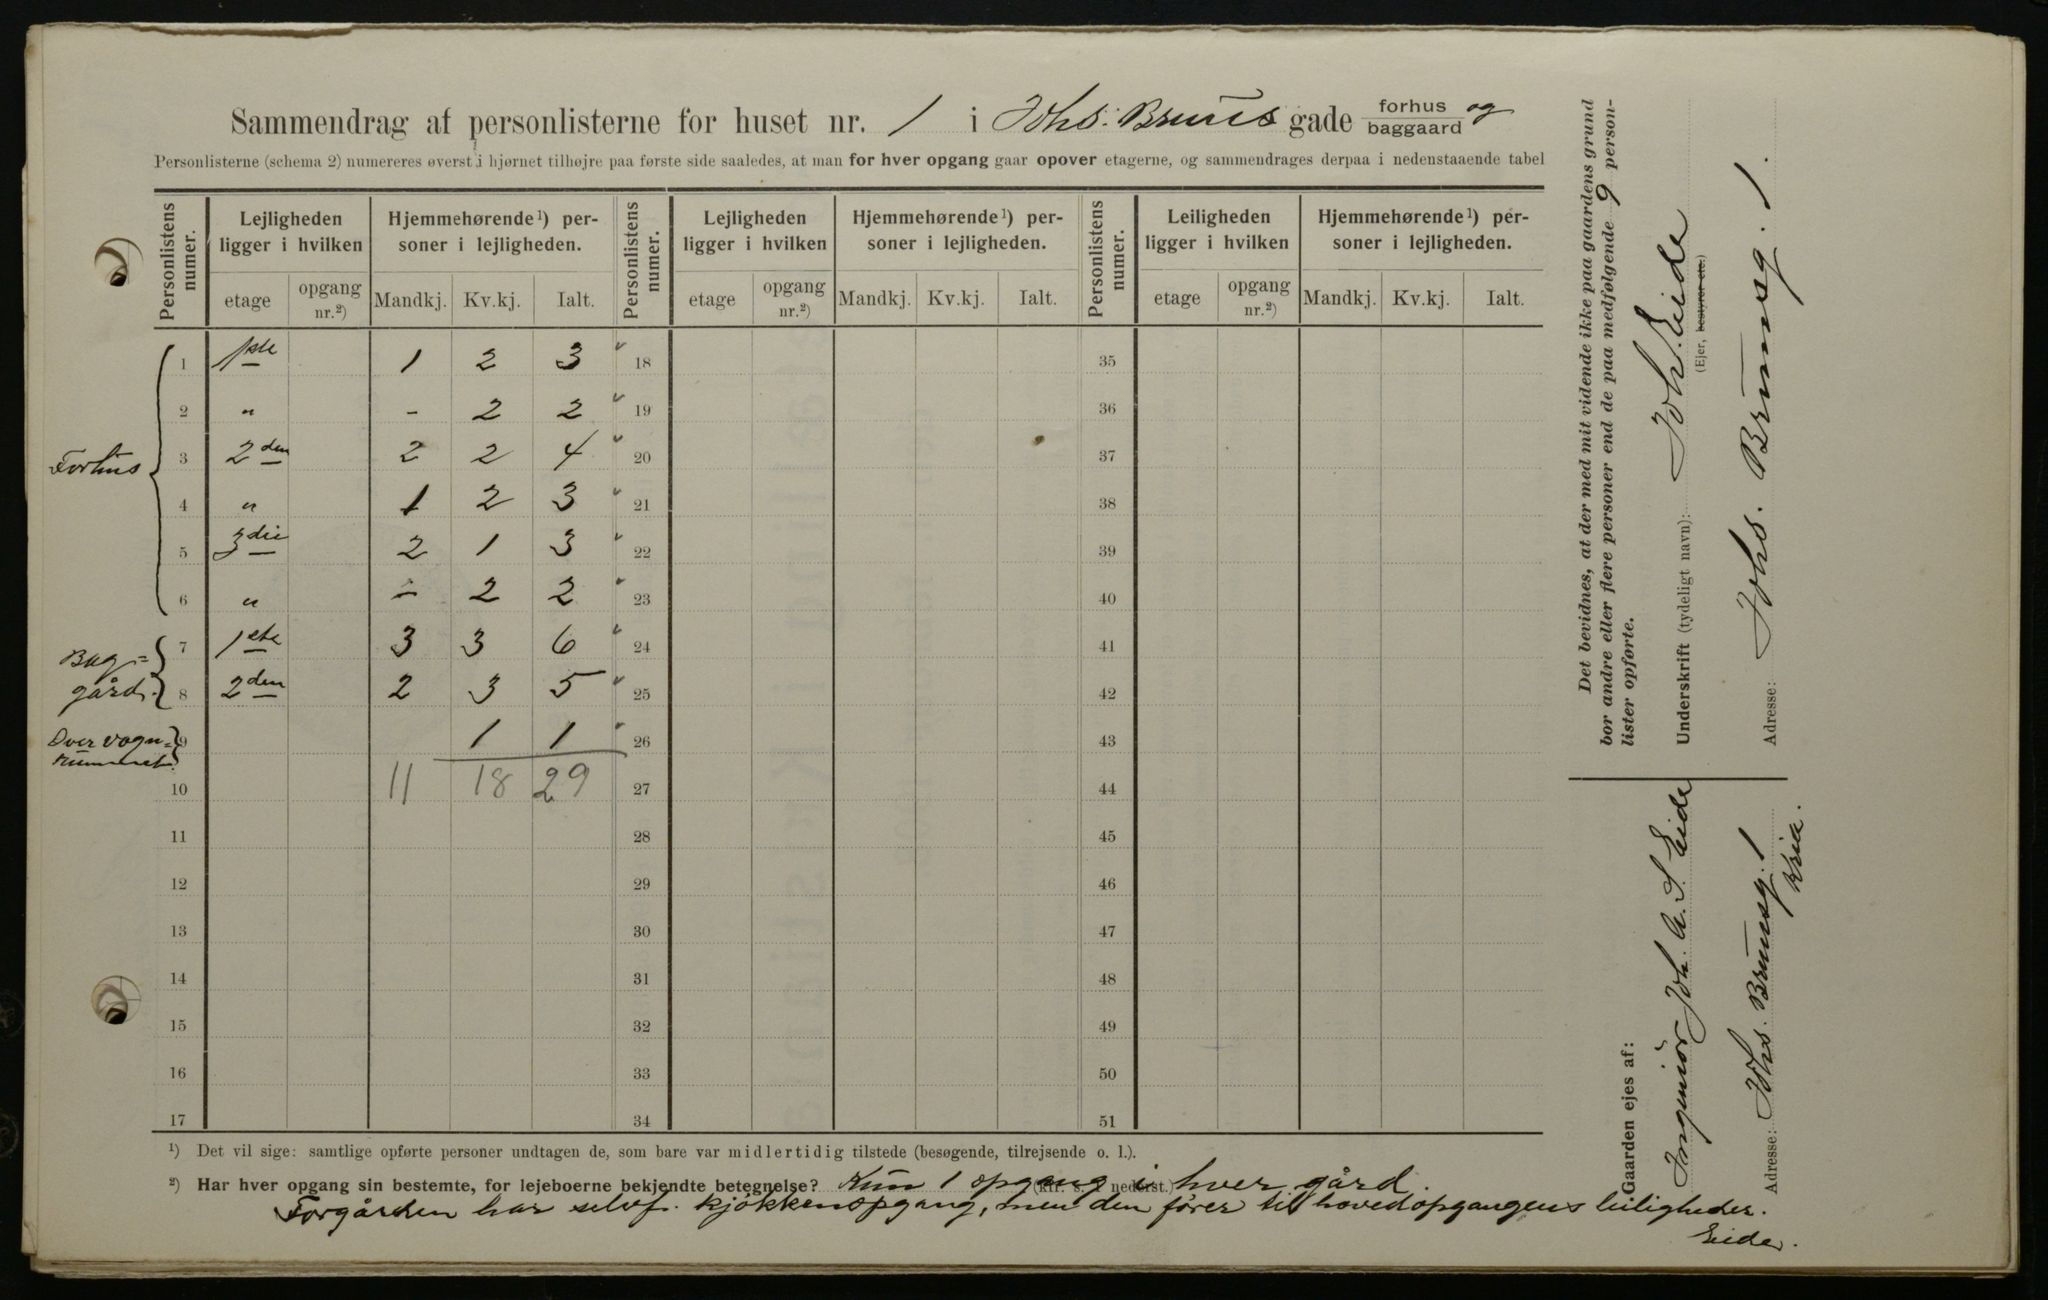 Sammendrag af personlisterne for huset nr. 1 i Johs. Bruns gade forhus og baggaard
Personlisterne (schema 2) numereres øverst i hjørnet tilhøjre paa første side saaledes, at man for hver opgang gaar opover etagerne, og sammendrages derpaa i nedenstaaende tabel
Personlistens numer. Lejligheden ligger i hvilken Hjemmehørende ¹) personer i lejligheden. Personlistens numer. Lejligheden ligger i hvilken Hjemmehørende ¹) personer i lejligheden. Personlistens numer. Leiligheden ligger i hvilken Hjemmehørende ¹) personer i lejligheden.
etage opgang nr.²) Mandkj. Kv.kj. Ialt. etage opgang nr.²) Mandkj. Kv.kj. Ialt. etage opgang nr.²) Mandkj. Kv.kj. Ialt.
Forhus
1 1ste 1 2 3 18 35
2 " - 2 2 19 36
3 2den 2 2 4 20 37
4 " 1 2 3 21 38
5 3die 2 1 3 22 39
6 " - 2 2 23 40
Bag=
gård.
7 1ste 3 3 6 24 41
8 2den 2 3 5 25 42
Over vogn=
rummet.
9 1 1 26 43
10 11 18 29 27 44
11 28 45
12 29 46
13 30 47
14 31 48
15 32 49
16 33 50
17 34 51
¹) Det vil sige: samtlige opførte personer undtagen de, som bare var midlertidig tilstede (besøgende, tilrejsende o. l.).
²) Har hver opgang sin bestemte, for lejeboerne bekjendte betegnelse? Kun 1 opgang i hver gård.
(kfr. s. 1 nederst.)
Forgården har selvf. kjökkenopgang, men den fører til hovedopgangens leiligheder.
Eide.
Det bevidnes, at der med mit vidende ikke paa gaardens grund
bor andre eller flere personer end de paa medfølgende 9 person-
lister opførte.
Underskrift (tydeligt navn): Joh. Eide
(Ejer, bestyrer etc.)
Adresse: Johs. Brunsg. 1.
Gaarden ejes af:
Ingeniør Joh. A. S. Eide
Adresse: Johs. Brunsg. 1
Kria.